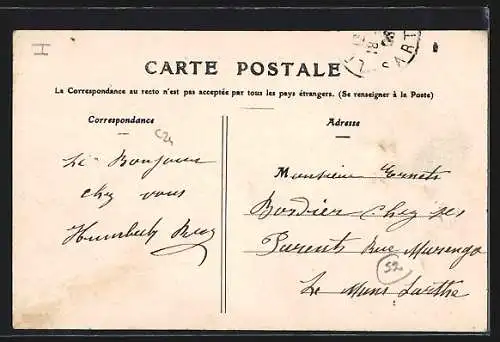 I
18
SART
CARTE POSTALE
La Correspondance au recto n'est pas acceptée par tous les pays étrangers. (Se renseigner à la Poste)
Correspondance
Adresse
Le Bonjour
chez vous
Monsieur Ernets
Bordier chez ses
Parents Rue Marengo
Le Mans Sarthe